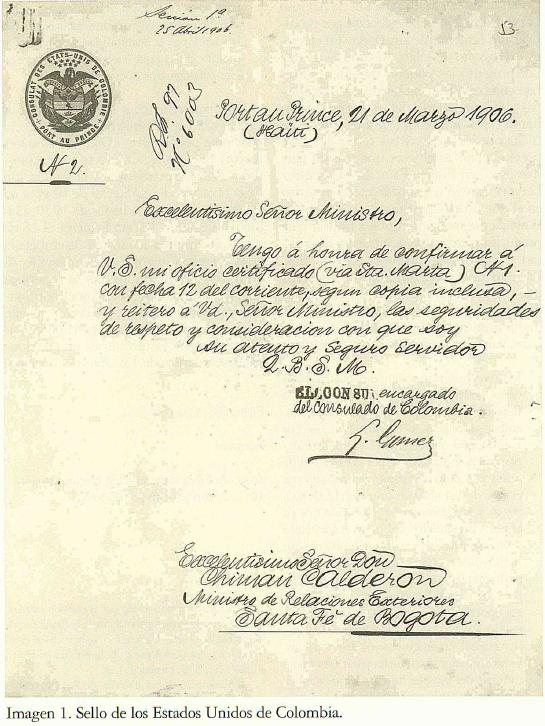 Sección 1ª
25 Abril 1906.
53
CONSULAT DES ÉTATS-UNIS DE COLOMBIE
PORT AU PRINCE
Nº 6003
Port au Prince, 21 de Marzo 1906.
(Haiti)
N 2.
Excelentisimo Señor Ministro,
Tengo á honra de confirmar á
V. E. mi oficio certificado (via Sta. Marta) N 1.
con fecha 12 del corriente, segun copia inclusa, –
y reitero a Vd., Señor Ministro, las seguridades
de respeto y consideracion con que soy
su atento y Seguro Servidor
Q. B. S. M.
EL CONSUL encargado
del Consulado de Colombia.
Excelentisimo Señor Don
Calderon
Ministro de Relaciones Exteriores
Santa Fé de Bogota.
Imagen 1. Sello de los Estados Unidos de Colombia.